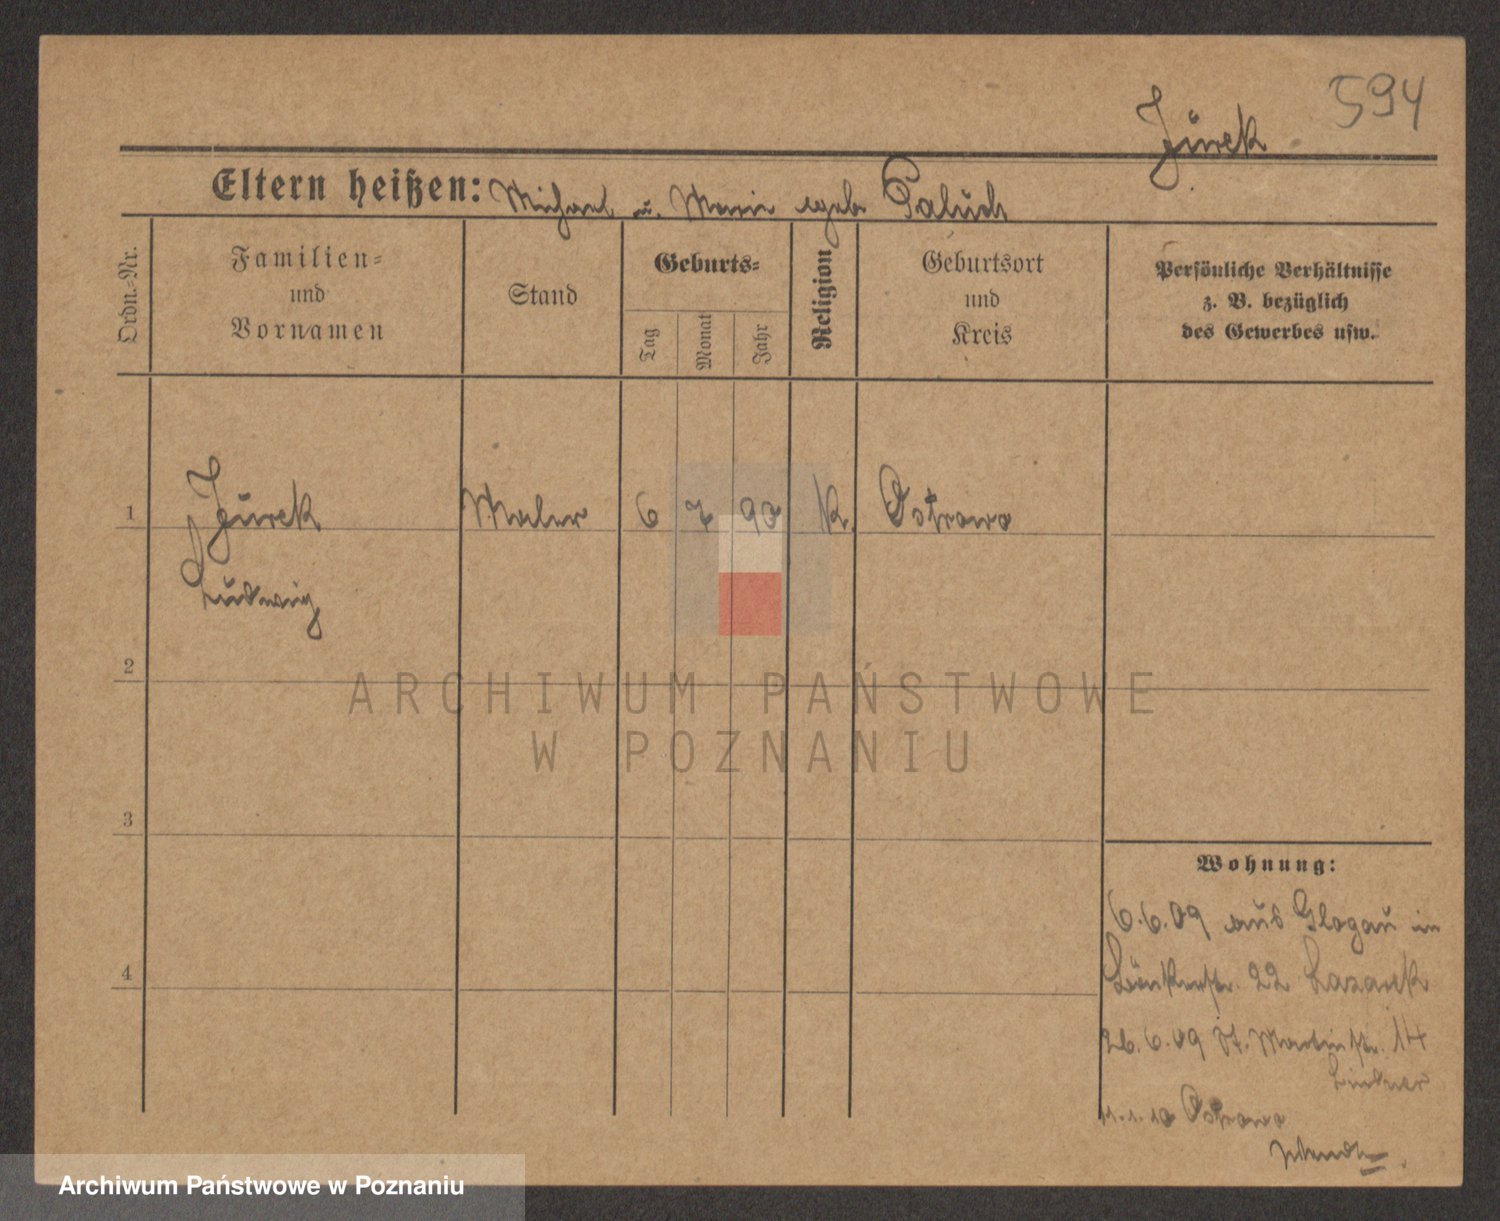 594
Jurek
Eltern heißen: Michael u. Marie geb. Paluch
Ordn.-Nr.
Familien- und Vornamen
Stand
Geburts-
Tag
Monat
Jahr
Religion
Geburtsort und Kreis
Persönliche Verhältnisse
z. B. bezüglich
des Gewerbes usw.
1 Jurek Maler 6 7 90 K. Ostrowo
Ludwig
2
3
4
Wohnung:
6.6.09 aus Glogau in
22
26.6.09 St. Martinstr. 14
Lindner
11.1.10 Ostrowo
ARCHIWUM PAŃSTWOWE
W POZNANIU
Archiwum Państwowe w Poznaniu